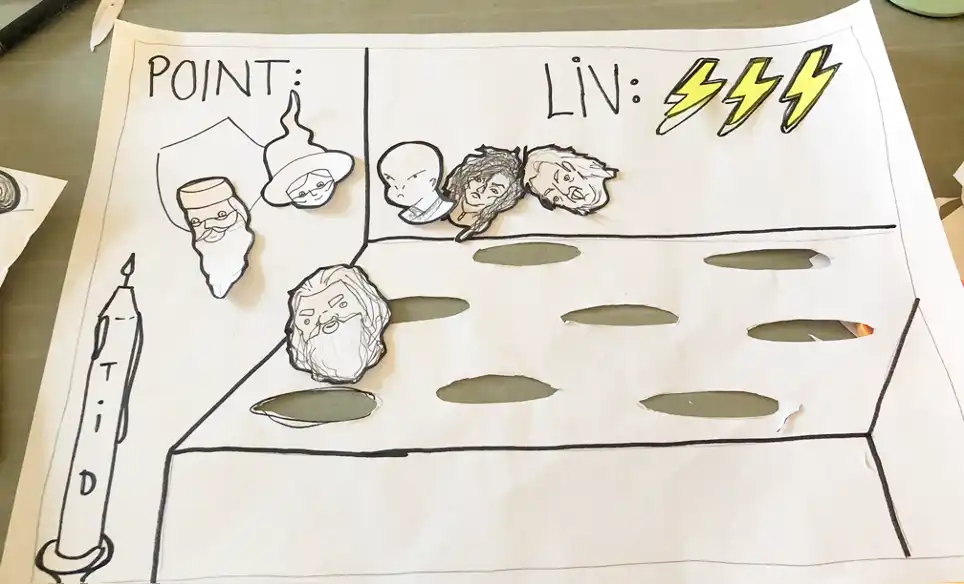 POINT:
LiV:
TiD